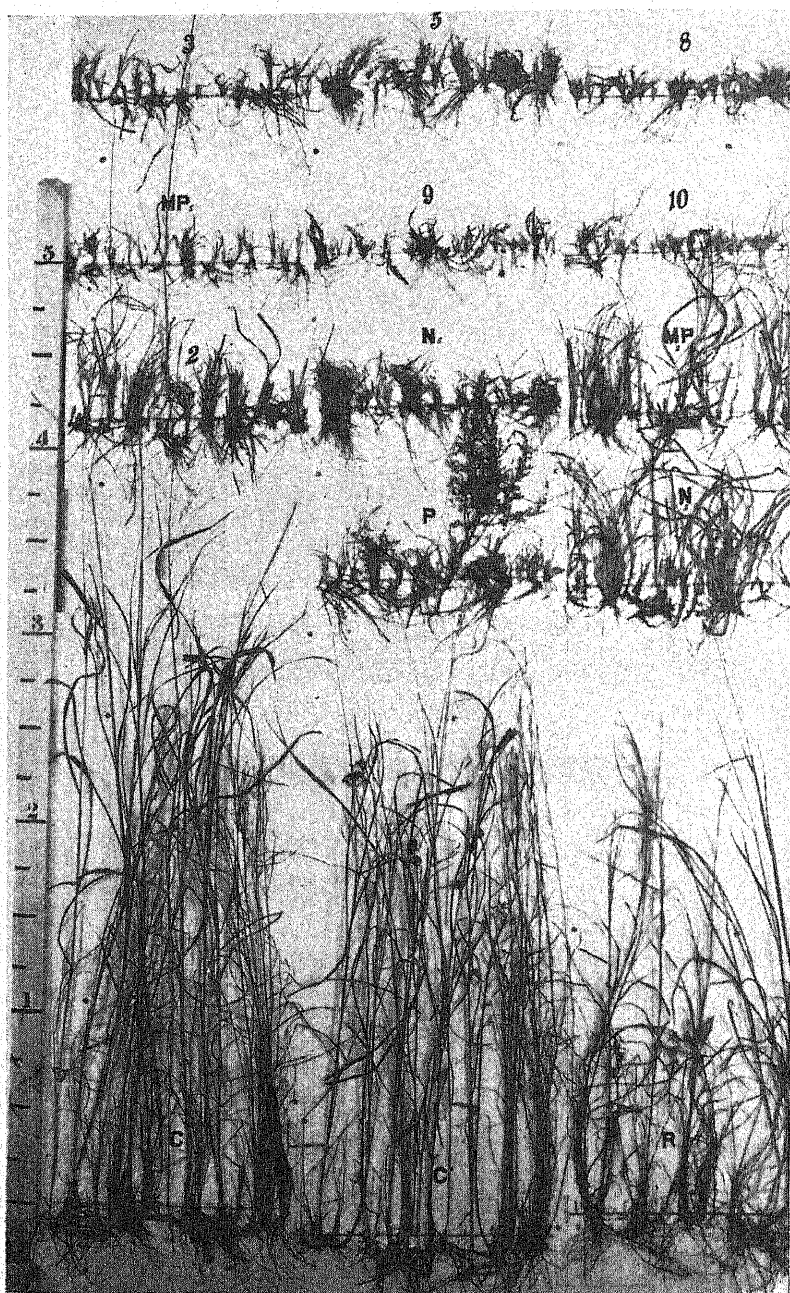 3 5 8
MP. 9 10
5
2 N. MP
4
P N
3
2
1
C C R